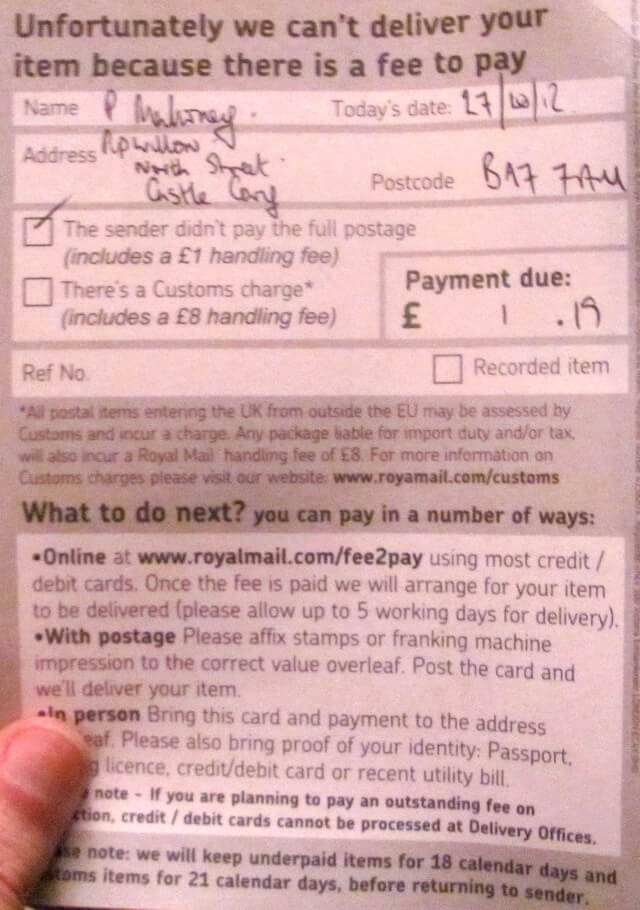 Unfortunately we can't deliver your
item because there is a fee to pay
Name P Mahoney. Today's date: 27/10/12
Address
North Street
Castle Cary Postcode BA7 7AU
The sender didn't pay the full postage
(includes a £1 handling fee)
There's a Customs charge*
(includes a £8 handling fee)
Payment due:
£ 1 .19
Ref No. Recorded item
*All postal items entering the UK from outside the EU may be assessed by
Customs and incur a charge. Any package liable for import duty and/or tax,
will also incur a Royal Mail handling fee of £8. For more information on
Customs charges please visit our website: www.royamail.com/customs
What to do next? you can pay in a number of ways:
•Online at www.royalmail.com/fee2pay using most credit /
debit cards. Once the fee is paid we will arrange for your item
to be delivered (please allow up to 5 working days for delivery).
•With postage Please affix stamps or franking machine
impression to the correct value overleaf. Post the card and
we'll deliver your item.
•In person Bring this card and payment to the address
eaf. Please also bring proof of your identity: Passport,
g licence, credit/debit card or recent utility bill.
note - If you are planning to pay an outstanding fee on
ction, credit / debit cards cannot be processed at Delivery Offices.
se note: we will keep underpaid items for 18 calendar days and
stoms items for 21 calendar days, before returning to sender.